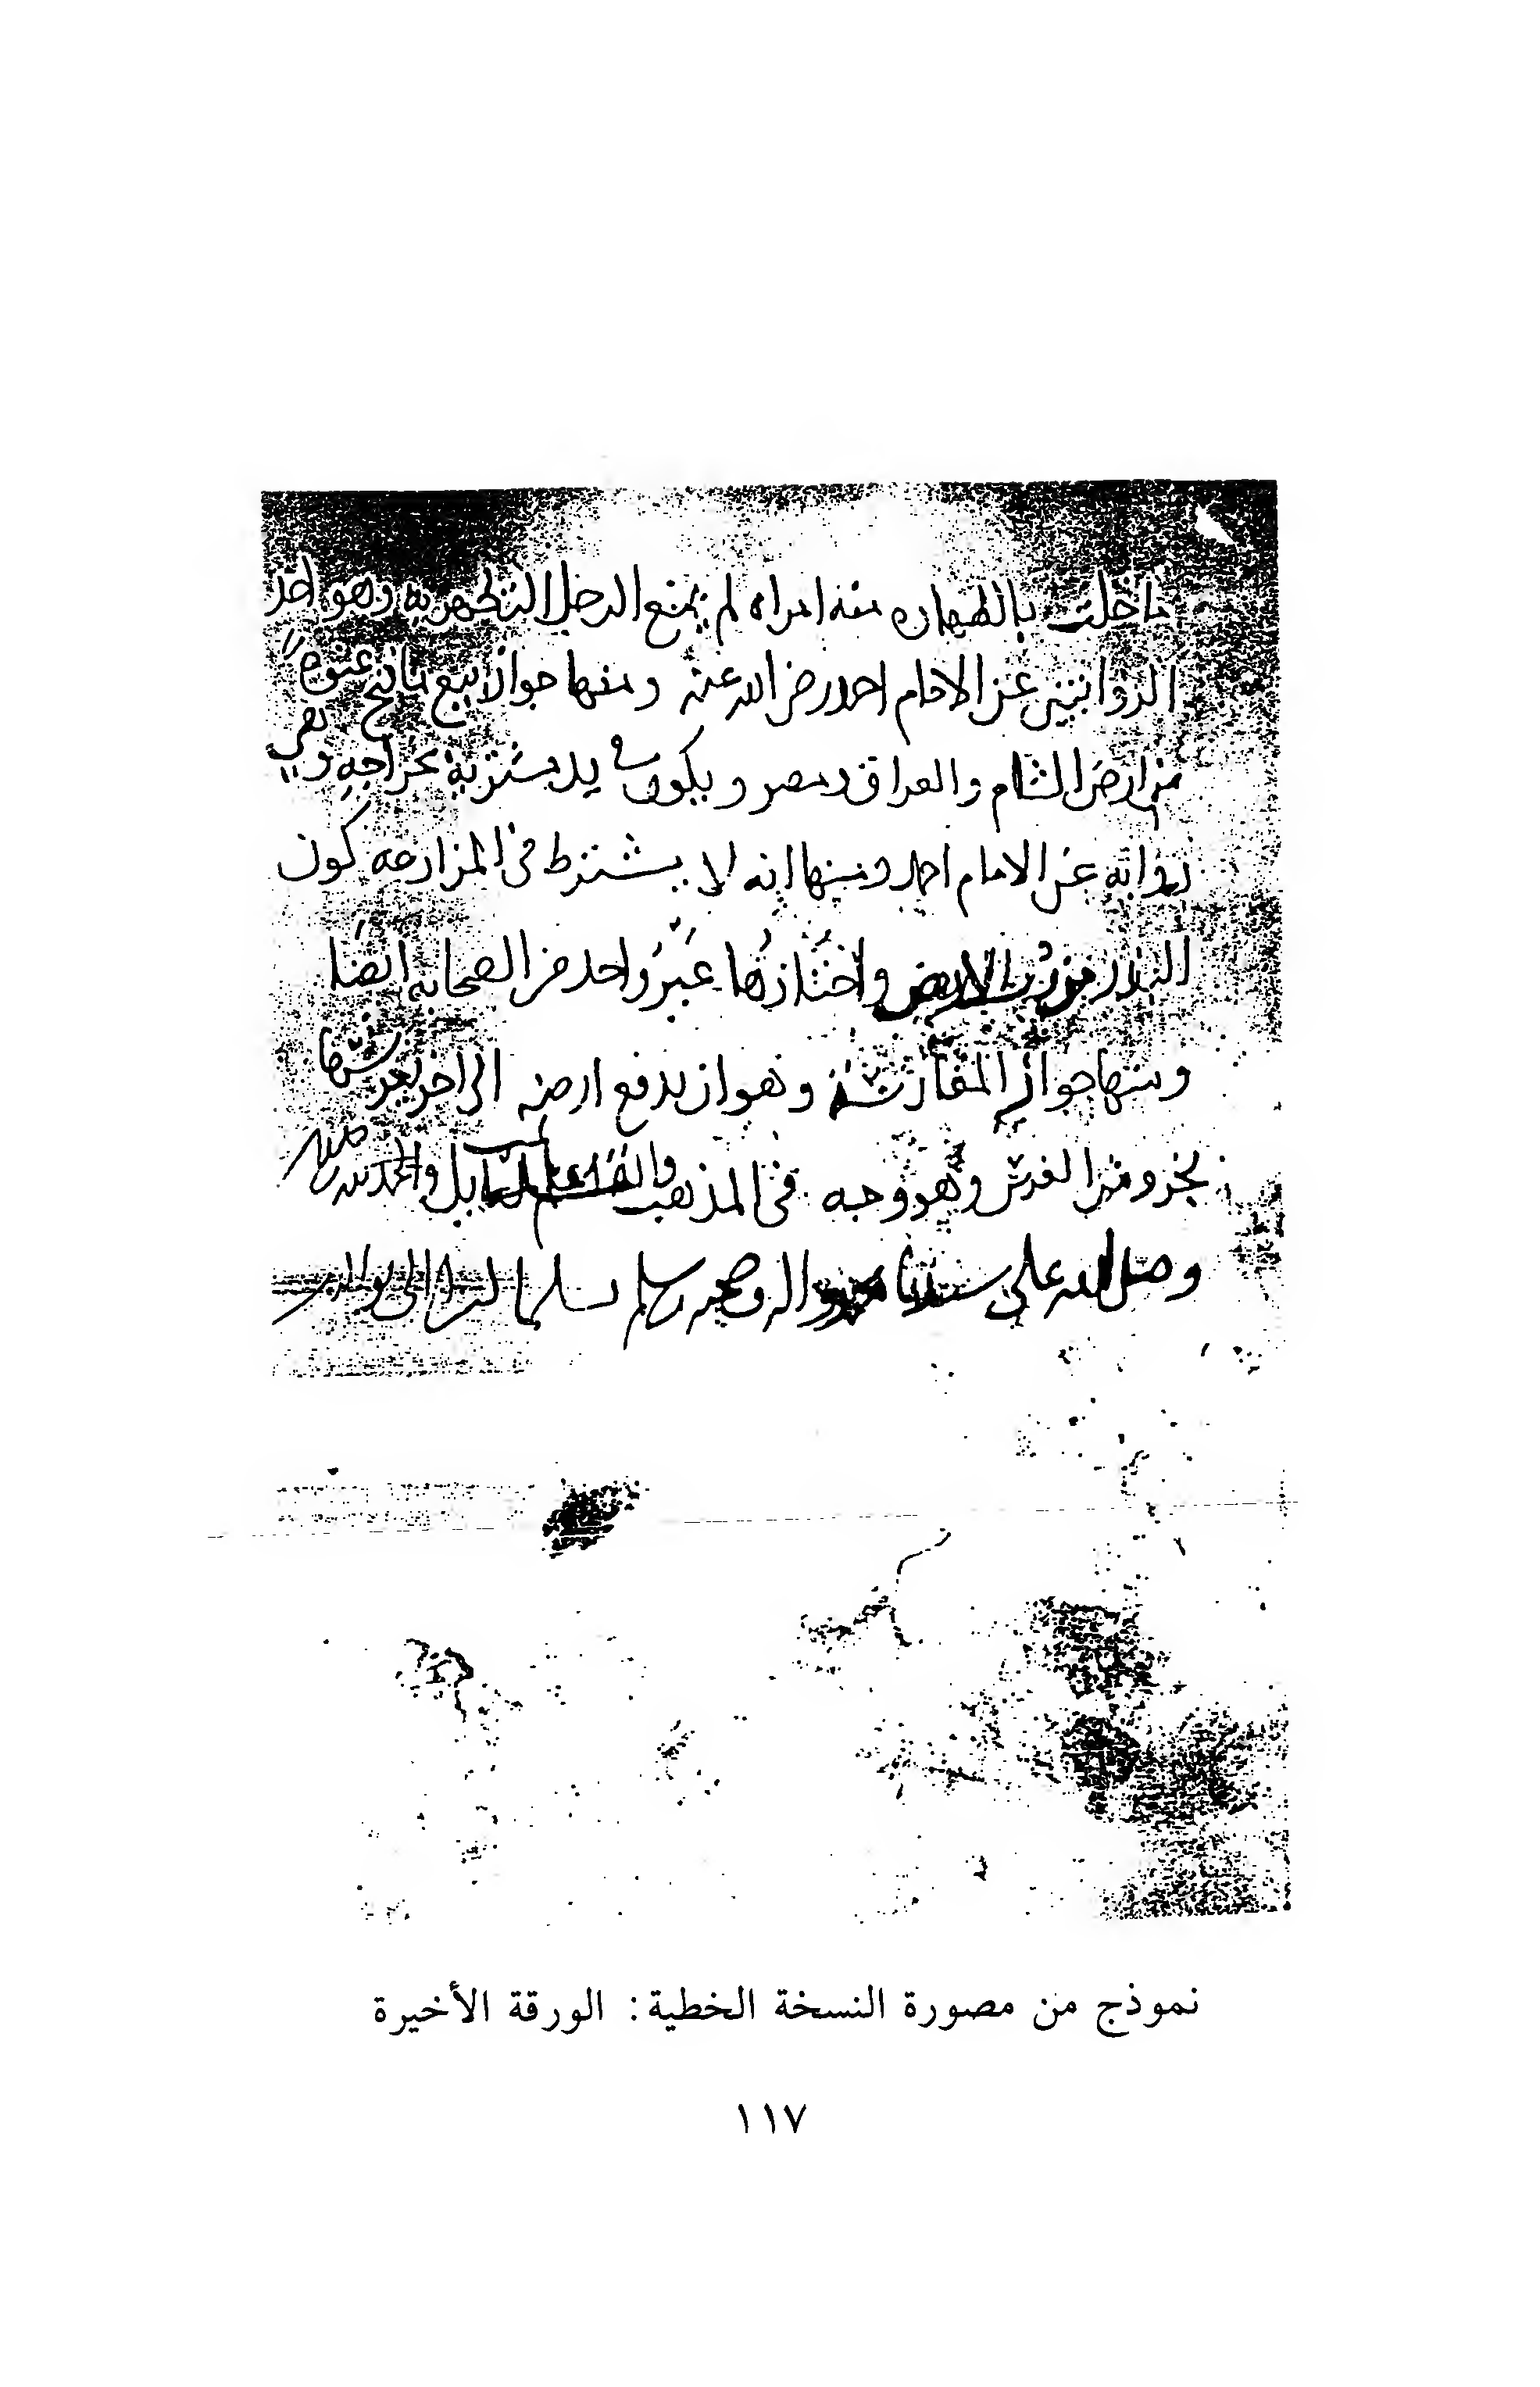 ما خلت بالطهاره منه امراه لم يمنع الرجل التطهر به وهو احد
الروايتين عن الامام احمد رضي الله عنه ومنها جواز بيع ما فتح عنوة
من ارض الشام والعراق ومصر ويكون في يد مشتريه بخراجه
روايه عن الامام احمد ومنها انه لا يشترط في المزارعه كون
البذر من رب الارض واختارها غير واحد من الصحابه ايضا
ومنها جواز المغارسة وهو ان يدفع ارضه الى اخر يغرسها
بجزو من الغرس وهو وجه في المذهب والحمد لله
وصلى الله على سيدنا محمد واله وصحبه وسلم تسليما كثيرا الى يوم الدين
نموذج من مصورة النسخة الخطية: الورقة الأخيرة
١١٧